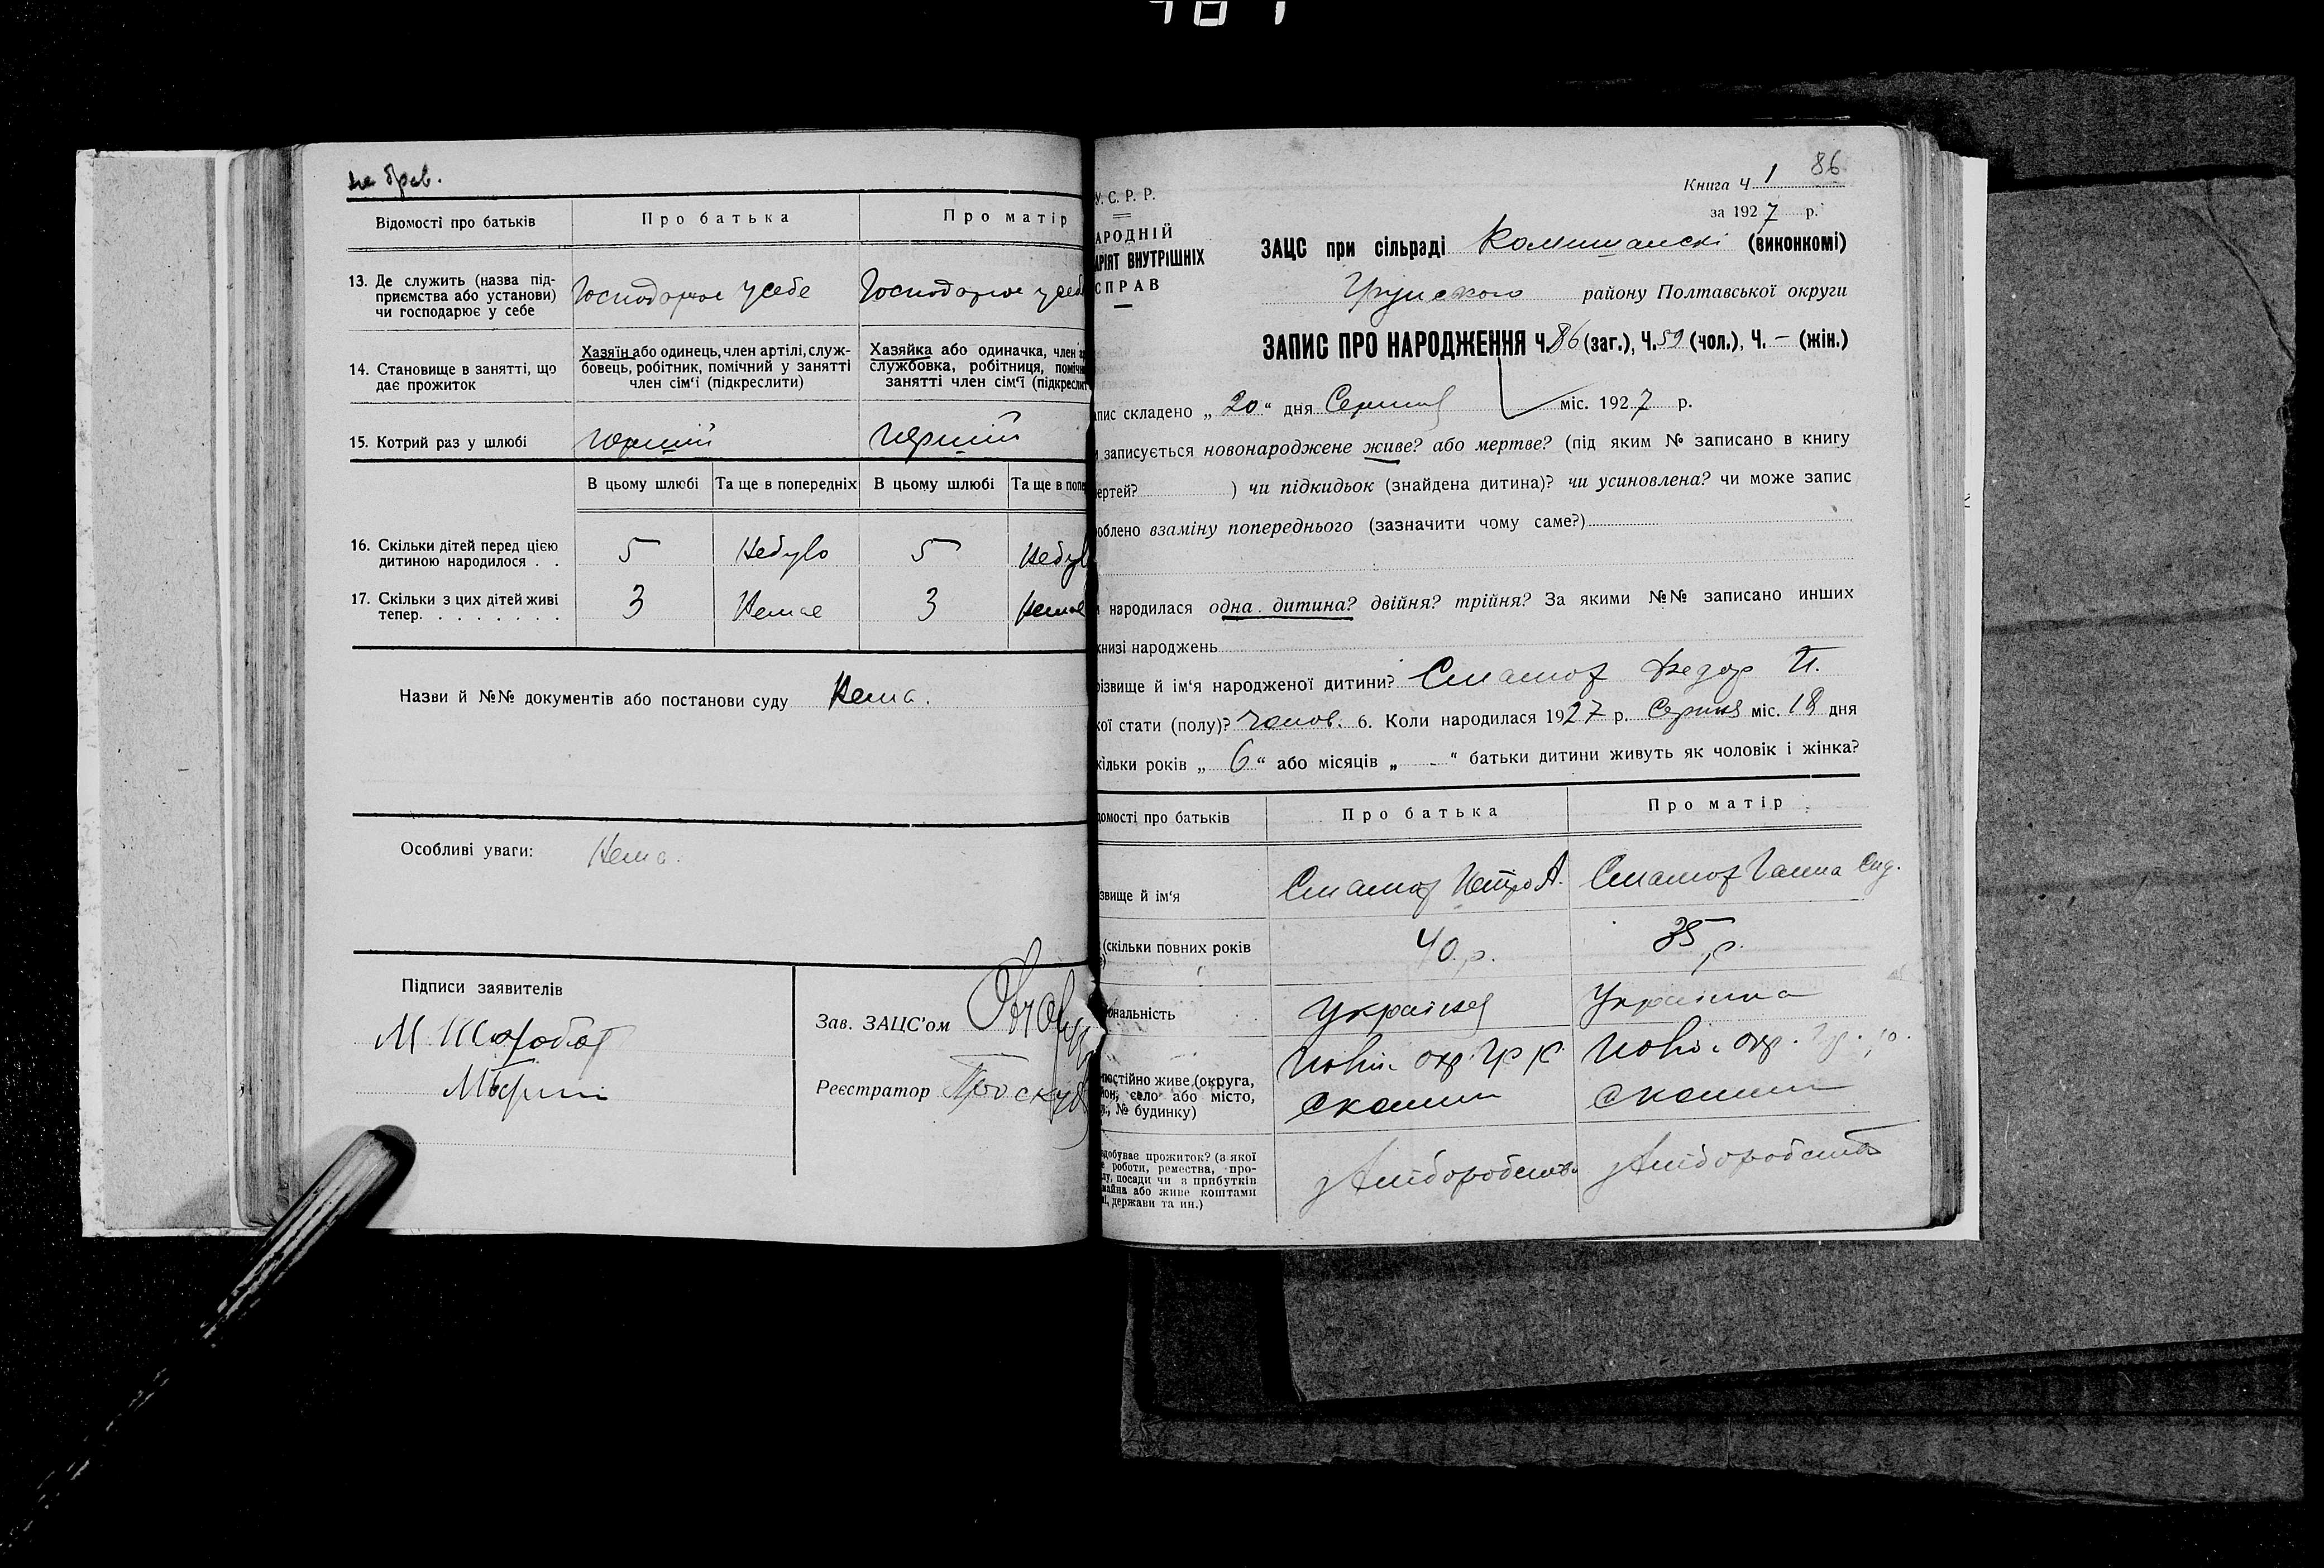 не брав.
Відомості про батьків
Про батька
Про матір
13. Де служить (назва під-
приємства або установи)
чи господарює у себе
Господарює у себе
Господарює у себе
14. Становище в занятті, що
дає прожиток
Хазяїн або одинець, член артілі, служ-
бовець, робітник, помічний у занятті
член сім'ї (підкреслити)
Хазяйка або одиначка, член а
службовка, робітниця, поміч
занятті член сім'ї (підкресли
15. Котрий раз у шлюбі
перший
перший
В цьому шлюбі
Та ще в попередніх
В цьому шлюбі
Та ще в попе
16. Скільки дітей перед цією
дитиною народилося . .
5
Небуло
5
Небул
17. Скільки з цих дітей живі
тепер. . . . . . . .
3
Немає
3
Немає
Назви й №№ документів або постанови суду Нема.
Особливі уваги: Нема.
Підписи заявителів
Зав. ЗАЦС'ом
Реєстратор
86
Книга Ч 1
за 1927 р.
У. С. Р. Р.
АРОДНІЙ
АРІЯТ ВНУТРІШНІХ
СПРАВ
ЗАЦС при сільраді (виконкомі)
району Полтавської округи
ЗАПИС ПРО НАРОДЖЕННЯ Ч. 86 (заг.), Ч. 59 (чол.), Ч. – (жін.)
апис складено „ 20 “ дня Серпня міс. 1927 р.
и записується новонароджене живе? або мертве? (під яким № записано в книгу
мертей? ) чи підкидьок (знайдена дитина)? чи усиновлена? чи може запис
роблено взаміну попереднього (зазначити чому саме?)
и народилася одна дитина? двійня? трійня? За якими №№ записано инших
книзі народжень
різвище й ім'я народженої дитини? П.
кої стати (полу)? чолов. 6. Коли народилася 1927 р. Серпня міс. 18 дня
кільки років „ 6 “ або місяців „ - “ батьки дитини живуть як чоловік і жінка?
домості про батьків
Про батька
Про матір
звище й ім'я
Петро А.
Ганна Сид.
(скільки повних років
40 р.
35 р.
ональність
Українец
Українка
постійно живе (округа,
йон, село або місто,
л., № будинку)
добуває прожиток? (з якої
е роботи, ремества, про-
у, посади чи з прибутків
майна або живе коштами
і, держави та ин.)
хліборобства
хліборобства